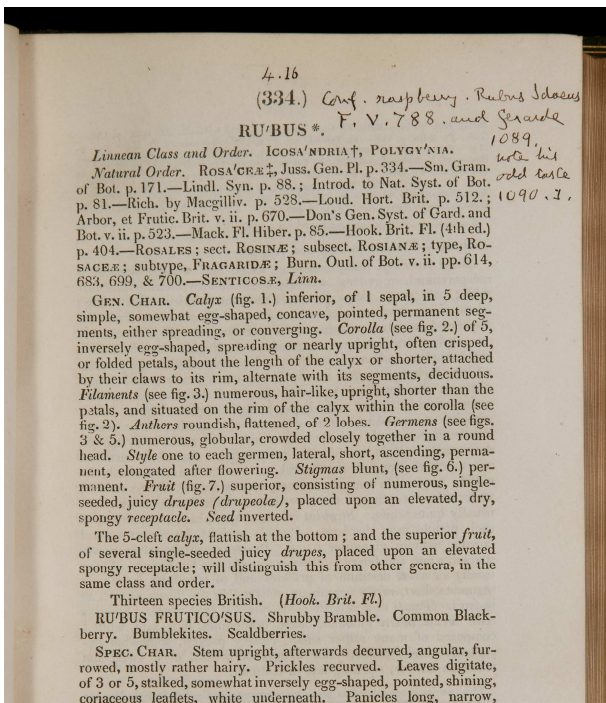 4.16
(334.) Conf. raspberry. Rubus Idaeus
F. V. 788. and Gerarde
1089,
note his
odd taste
1090. I.
RU'BUS *.
Linnean Class and Order. ICOSA'NDRIA†, POLYGY'NIA.
Natural Order. ROSA'CEÆ‡, Juss. Gen. Pl. p. 334.—Sm. Gram.
of Bot. p. 171.—Lindl. Syn. p. 88.; Introd. to Nat. Syst. of Bot.
p. 81.—Rich. by Macgilliv. p. 528.—Loud. Hort. Brit. p. 512.;
Arbor, et Frutic. Brit. v. ii. p. 670.—Don's Gen. Syst. of Gard. and
Bot. v. ii. p. 523.—Mack. Fl. Hiber. p. 85.—Hook. Brit. Fl. (4th ed.)
p. 404.—ROSALES; sect. ROSINÆ; subsect. ROSIANÆ; type, RO-
SACEÆ; subtype, FRAGARIDÆ; Burn. Outl. of Bot. v. ii. pp. 614,
683, 699, & 700.—SENTICOSÆ, Linn.
GEN. CHAR. Calyx (fig. 1.) inferior, of 1 sepal, in 5 deep,
simple, somewhat egg-shaped, concave, pointed, permanent seg-
ments, either spreading, or converging. Corolla (see fig. 2.) of 5,
inversely egg-shaped, spreading or nearly upright, often crisped,
or folded petals, about the length of the calyx or shorter, attached
by their claws to its rim, alternate with its segments, deciduous.
Filaments (see fig. 3.) numerous, hair-like, upright, shorter than the
petals, and situated on the rim of the calyx within the corolla (see
fig. 2). Anthers roundish, flattened, of 2 lobes. Germens (see figs.
3 & 5.) numerous, globular, crowded closely together in a round
head. Style one to each germen, lateral, short, ascending, perma-
nent, elongated after flowering. Stigmas blunt, (see fig. 6.) per-
manent. Fruit (fig. 7.) superior, consisting of numerous, single-
seeded, juicy drupes (drupeolæ), placed upon an elevated, dry,
spongy receptacle. Seed inverted.
The 5-cleft calyx, flattish at the bottom; and the superior fruit,
of several single-seeded juicy drupes, placed upon an elevated
spongy receptacle; will distinguish this from other genera, in the
same class and order.
Thirteen species British. (Hook. Brit. Fl.)
RU'BUS FRUTICO'SUS. Shrubby Bramble. Common Black-
berry. Bumblekites. Scaldberries.
SPEC. CHAR. Stem upright, afterwards decurved, angular, fur-
rowed, mostly rather hairy. Prickles recurved. Leaves digitate,
of 3 or 5, stalked, somewhat inversely egg-shaped, pointed, shining,
coriaceous leaflets, white underneath. Panicles long, narrow,